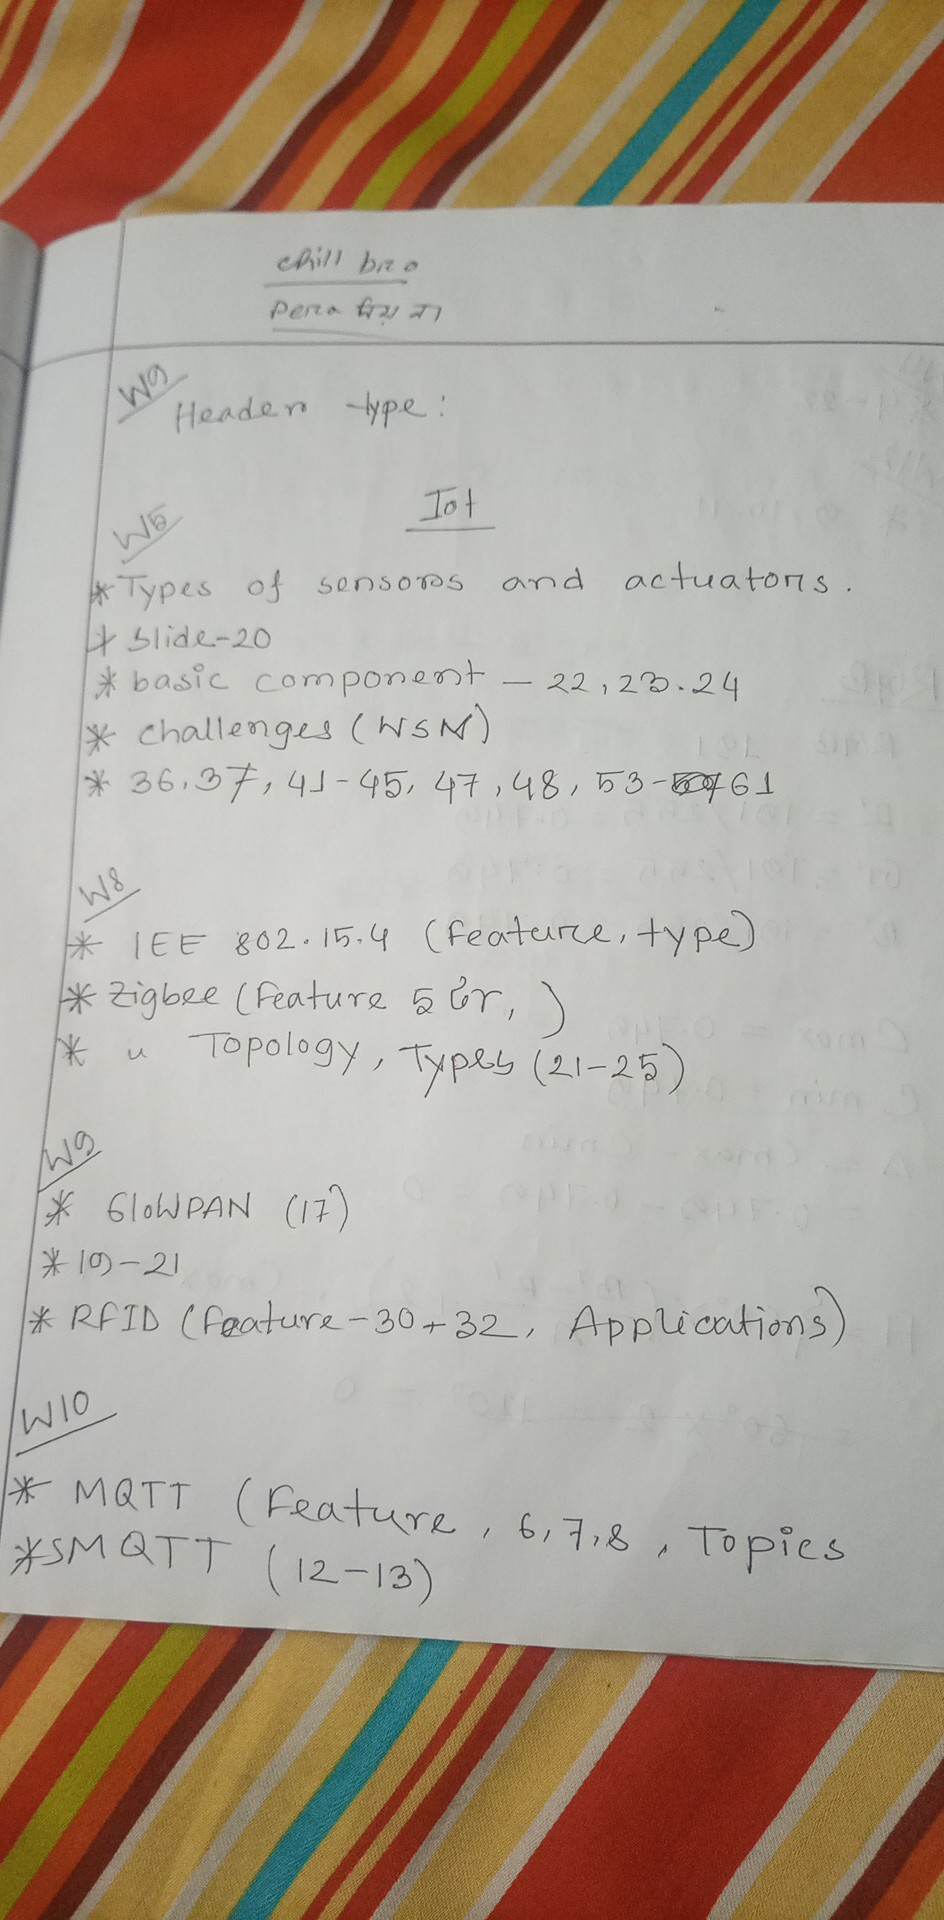 chill bro
Pera নিয় না
W9
Header type:
Iot
W5
* Types of sensors and actuators.
* Slide-20
* basic component - 22, 23. 24
* challenges (WSN)
* 36, 37, 41-45, 47, 48, 53- 61
W8
* IEE 802.15.4 (Feature, type)
* Zigbee (Feature 5 টা, )
* " Topology, Types (21-25)
W9
* 6loWPAN (17)
* 19-21
* RFID (Feature-30+32, Applications)
W10
* MQTT (Feature, 6,7,8, Topics
* SMQTT (12-13)